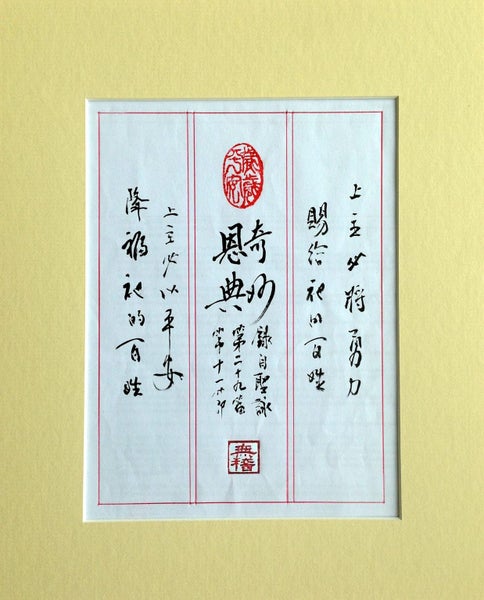 上主必將勇力
賜給祂的百姓
歲歲
平安
奇妙
恩典
錄自聖詠
第二十九篇
第十一節
上主必以平安
降福祂的百姓